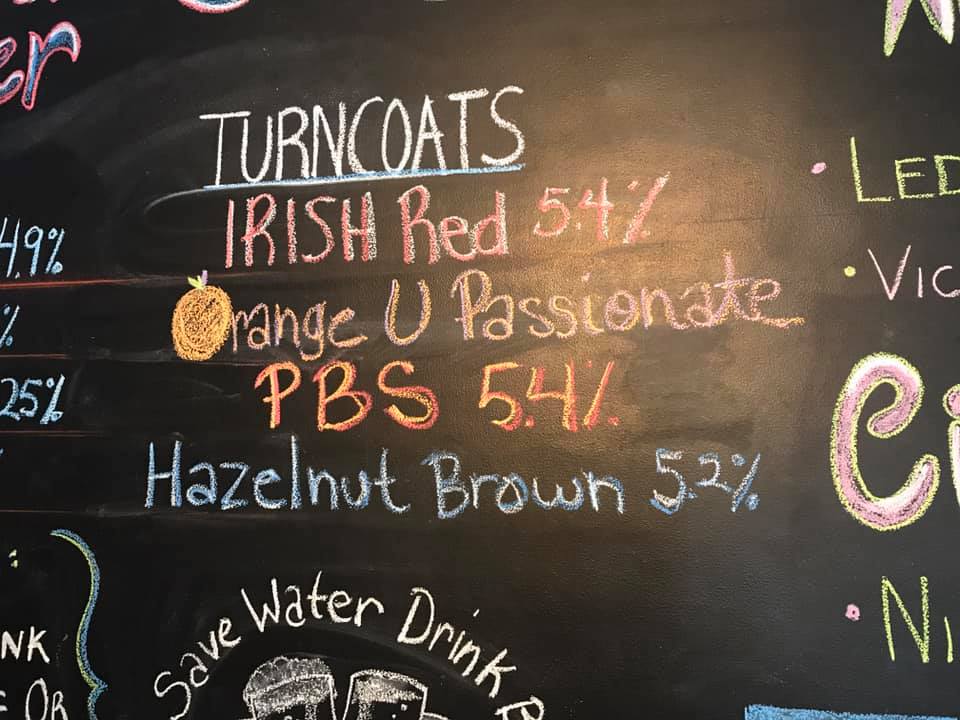 TURNCOATS
IRISH Red 5.4%
Orange U Passionate
PBS 5.4%
Hazelnut Brown 5.2%
4.9%
%
25%
Save Water Drink